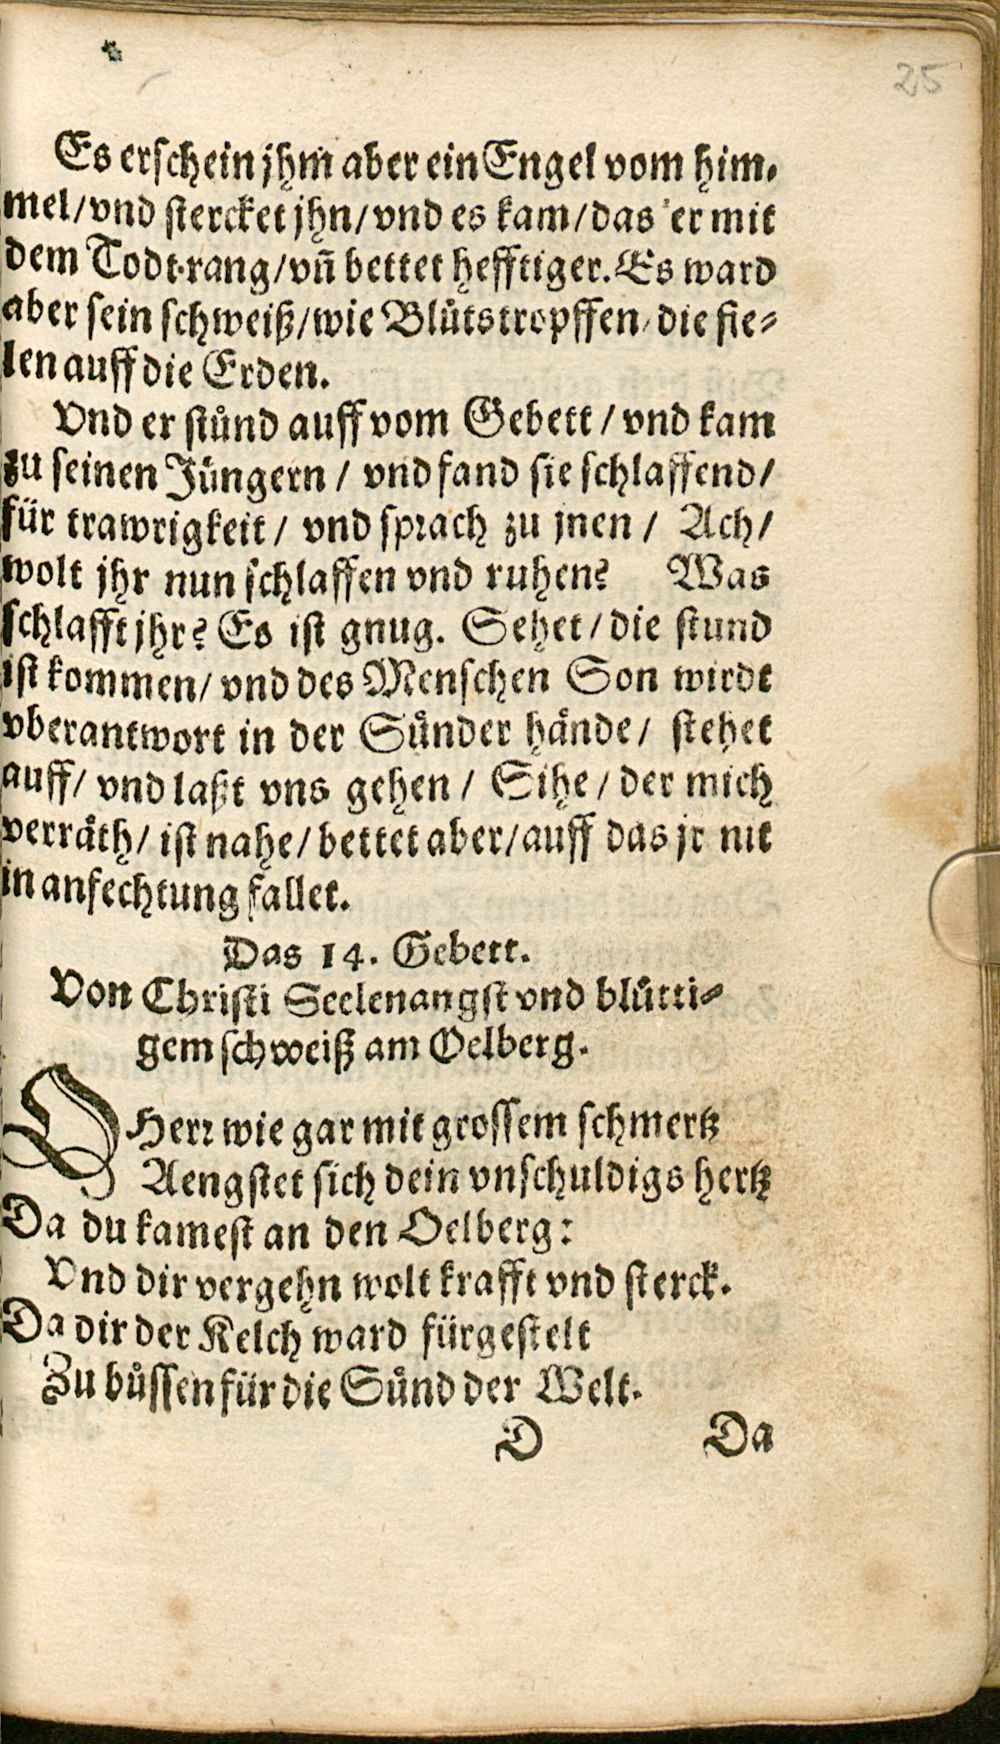 25
Es erschein jhm aber ein Engel vom him-
mel/vnd stercket jhn/vnd es kam/das er mit
dem Todt rang/vñ bettet hefftiger. Es ward
aber sein schweiß/wie Blůtstropffen/die fie-
len auff die Erden.
Vnd er stůnd auff vom Gebett/vnd kam
zu seinen Jüngern/vnd fand sie schlaffend/
für trawrigkeit/vnd sprach zu jnen/Ach/
wolt jhr nun schlaffen vnd ruhen? Was
schlafft jhr? Es ist gnug. Sehet/die stund
ist kommen/vnd des Menschen Son wirdt
vberantwort in der Sünder hände/stehet
auff/vnd laßt vns gehen/Sihe/der mich
verräth/ist nahe/bettet aber/auff das jr nit
in anfechtung fallet.
Das 14. Gebett.
Von Christi Seelenangst vnd blůtti-
gem schweiß am Oelberg.
O Herr wie gar mit grossem schmertz
Aengstet sich dein vnschuldigs hertz
Da du kamest an den Oelberg:
Vnd dir vergehn wolt krafft vnd sterck.
Da dir der Kelch ward fürgestelt
Zu büssen für die Sünd der Welt.
D Da